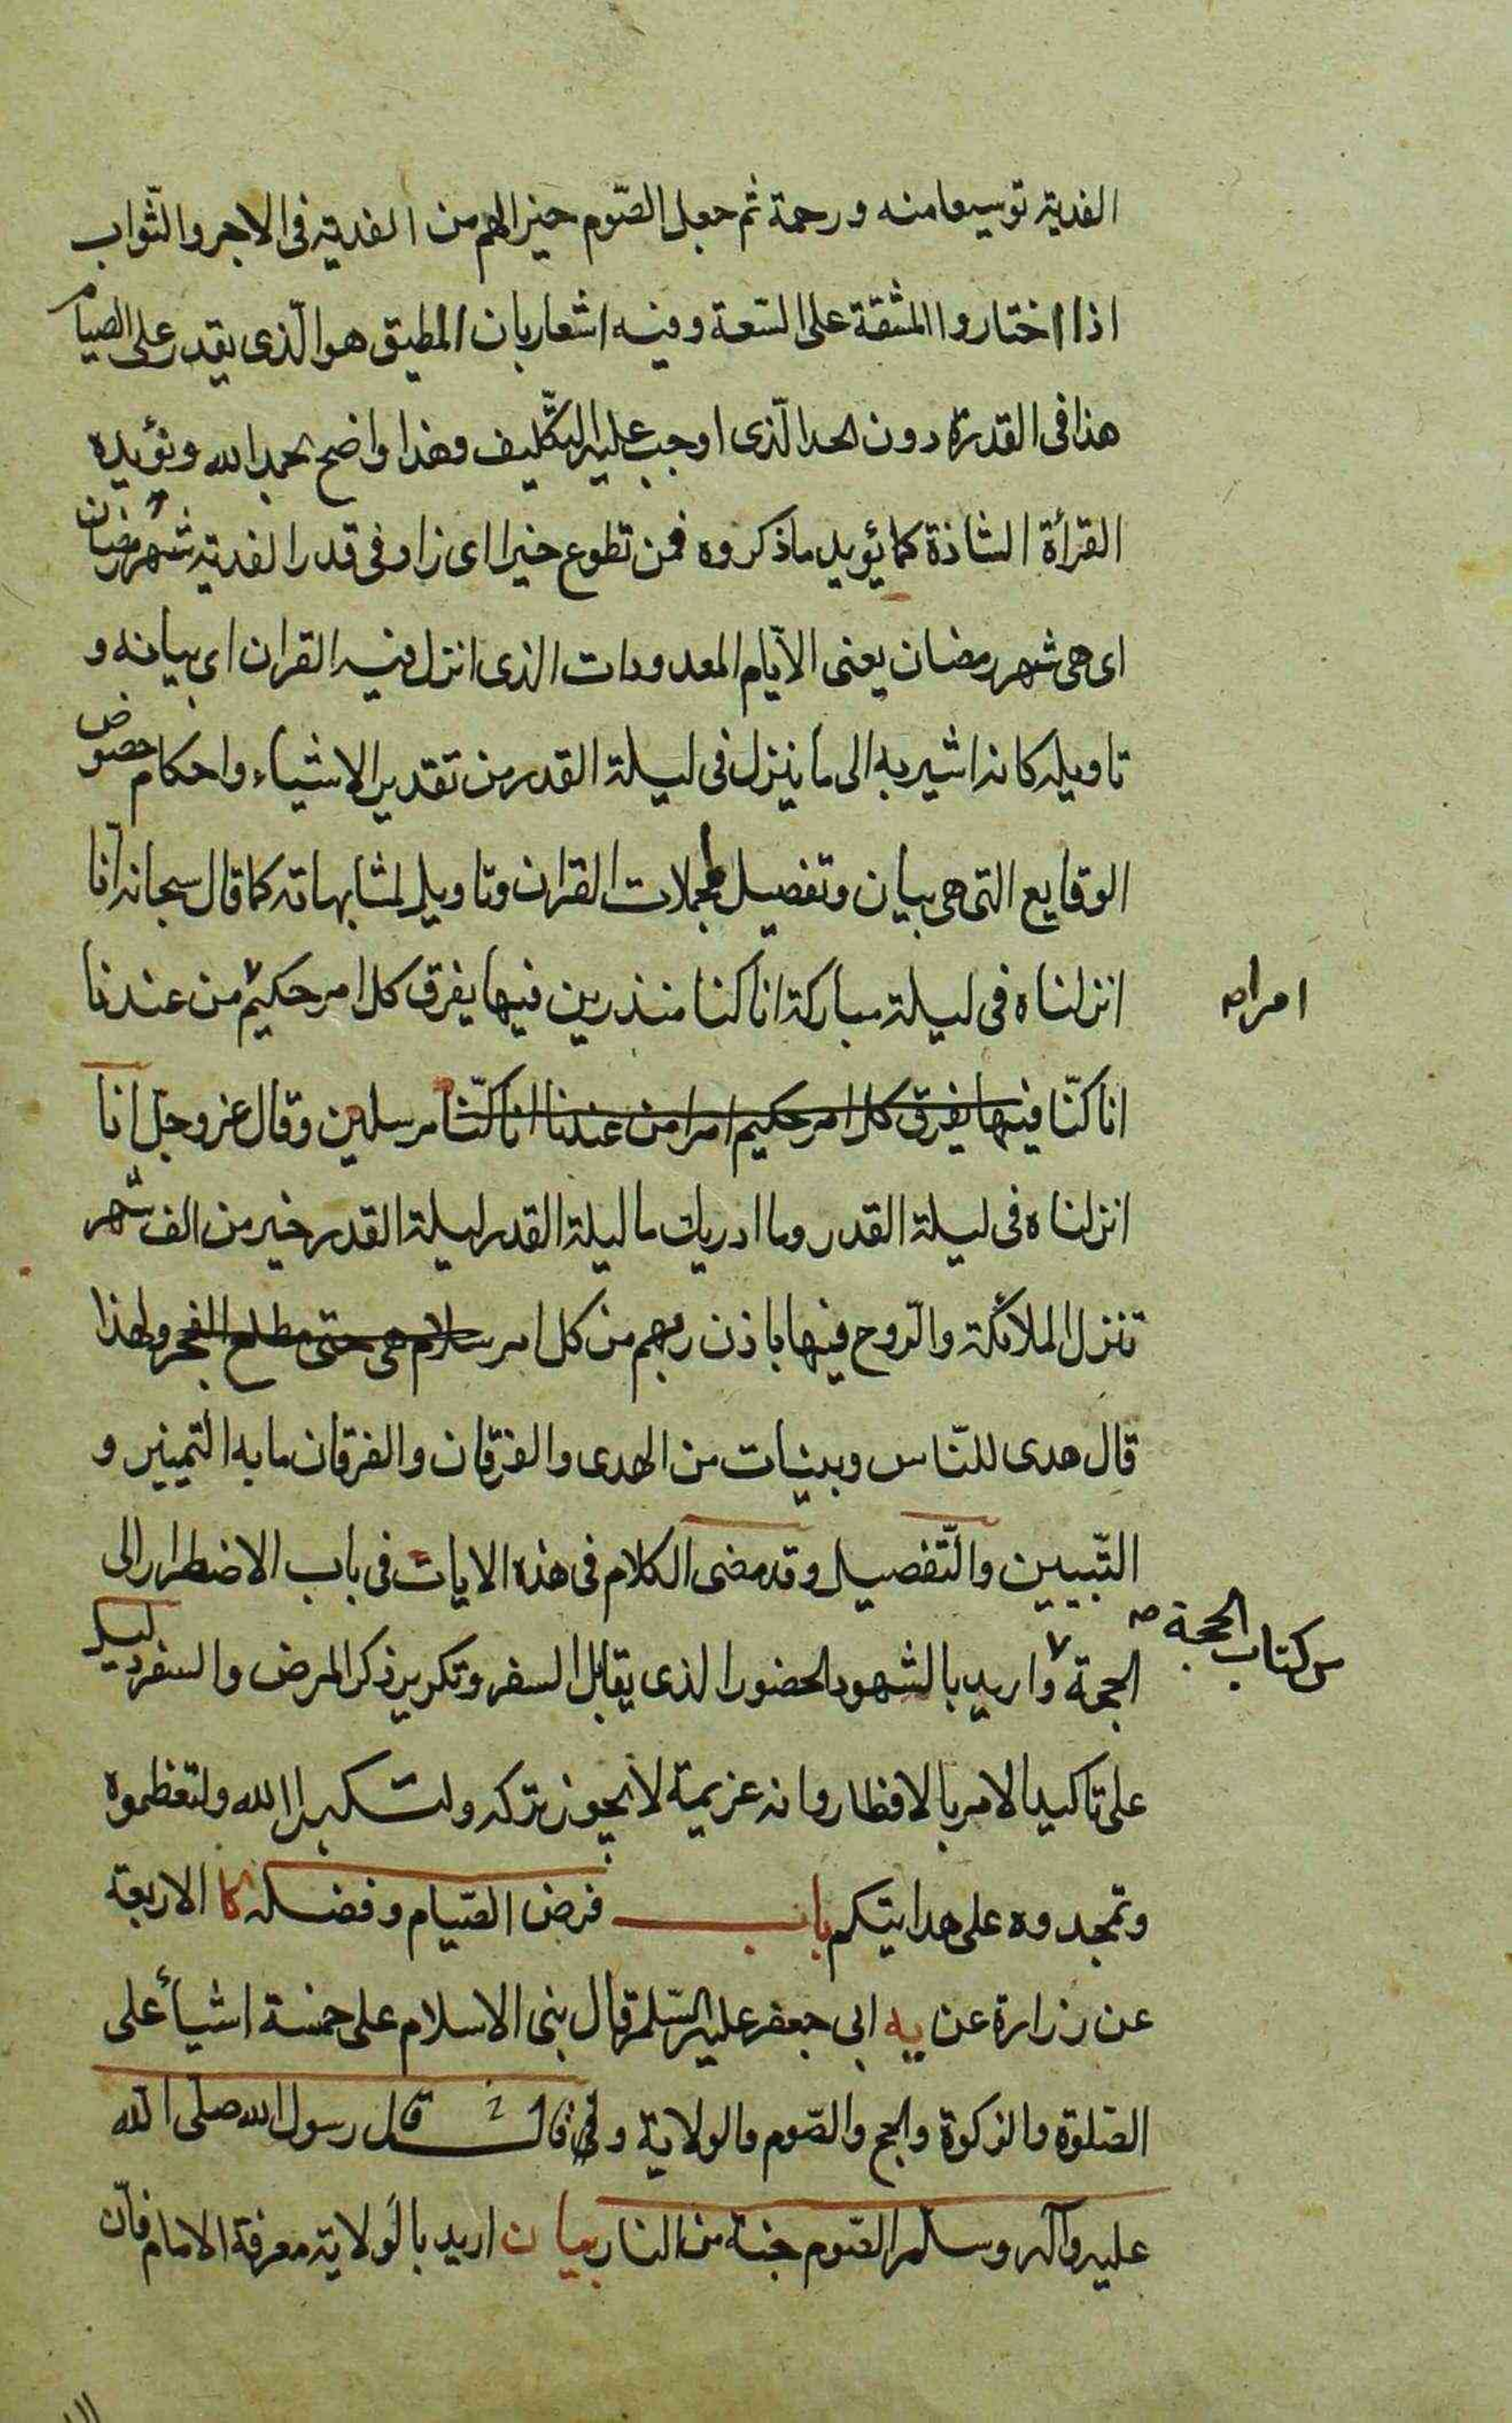 الفدية توسيعا منه ورحمة ثم جعل الصّوم خيرا لهم من الفدية فى الاجر والثّواب
اذا اختاروا المشقة على السّعة وفيه اشعار بان المطيق هو الّذى يقدر على الصيام
هذا فى القدرة دون الحد الّذى اوجب عليه التّكليف وهذا واضح بحمد الله ويؤيده
القرأة الشاذة كما يؤيد ما ذكروه فمن تطوع خيرا اى زاد فى قدر الفدية شهر رمضان
اى هى شهر رمضان يعنى الايّام المعدودات الذى انزل فيه القران اى بيانه و
تاويله كانه اشير به الى ما ينزل فى ليلة القدر من تقدير الاشياء واحكام خصوص
الوقايع التى هى بيان وتفصيل لمجملات القران وتاويل لمتشابهاته كما قال سبحانه انّا
انزلناه فى ليلة مباركة انا كنا منذرين فيها يفرق كل امر حكيم من عندنا
امرا صه
انا كنّا فيها يفرق كل امر حكيم امرا من عندنا انا كنّا مرسلين وقال عز وجل انا
انزلناه فى ليلة القدر وما ادريك ما ليلة القدر ليلة القدر خير من الف شهر
تنزل الملائكة والرّوح فيها باذن ربهم من كل امر سلام هى حتى مطلع الفجر ولهذا
قال هدى للنّاس وبينات من الهدى والفرقان والفرقان ما به التمييز و
التّبيين والتّفصيل وقد مضى الكلام فى هذه الايات فى باب الاضطرار الى
الحجة واريد بالشهود الحضور الذى يقابل السفر وتكرير ذكر المرض والسفر دليل
من كتاب الحجة صه
على تاكيد الامر بالافطار وانه عزيمة لا يجوز تركه ولتكبروا الله ولتعظموه
وتمجدوه على هدايتكم باب فرض الصّيام وفضله كا الاربعة
عن زرارة عن يه ابى جعفر عليه السّلم قال بنى الاسلام على خمسة اشيأ على
الصّلوة والزكوة والحج والصّوم والولاية و قال قال رسول الله صلى الله
عليه وآله وسلم الصّوم جنة من النار بيان اريد بالولاية معرفة الامام فانّ